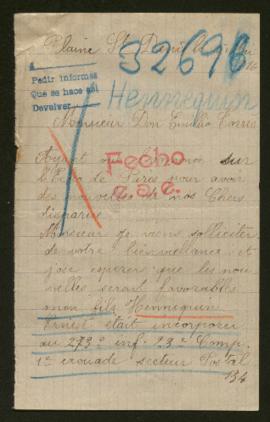 Plaine St Denis
32696
A
Pedir informes
Que se hace así
Devolver
Hennequin
Monsieur Don Emilio
Fecho
sur
de Paris pour avoir
des nouvelles de nos Chers
disparus
Monsieur je viens solliciter
de votre bienveillance et
j'ose esperer que les nou
velles seront favorables
mon fils Hennequin
Ernest était incorporer
au 273e inf. 23e Comp.
1e secteur Postal
134